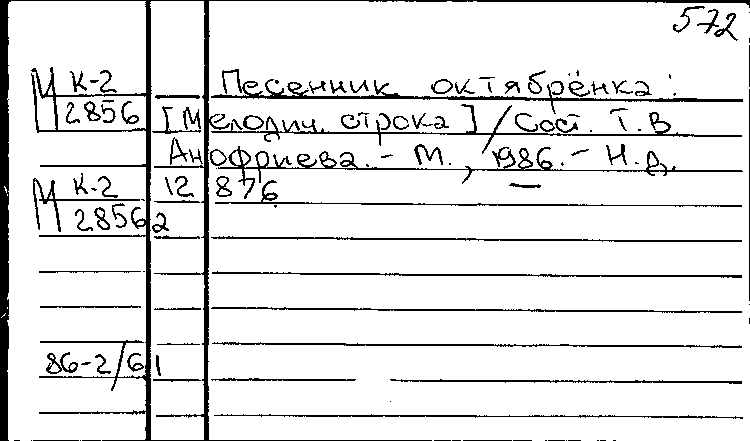 572
М К-2 Песенник октябрёнка:
2856 [Мелодич. строка] / Сост. Т.В
Анофриева. - М., 1986. - Н.д.
М К-2 12 876
2856 2
86-2/61